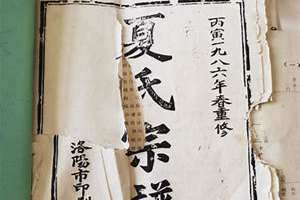 丙寅一九八六年春重修
夏氏宗譜
洛陽市印